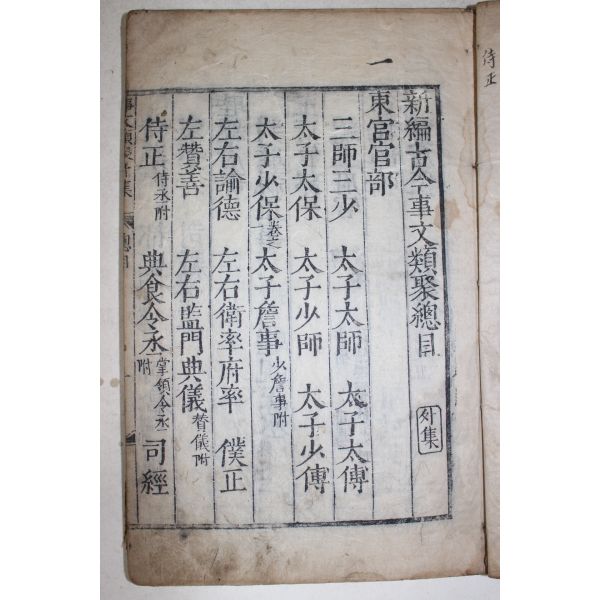 侍正
一
新編古今事文類聚總目 外集
東宮官部
三師三少 太子太師 太子太傅
太子太保 太子少師 太子少傅
太子少保 卷之 太子詹事 少詹事附
左右諭德 左右衛率府率 僕正
左贊善 左右監門 典儀 贊儀附
侍正 侍丞附 典食令丞 掌領令丞附 司經
事文類聚外集 總目